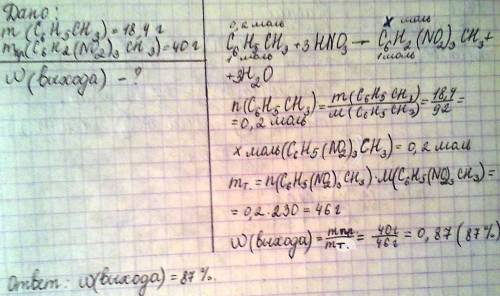 Дано:
m (C₆H₅CH₃) = 18,4 г
mпр(C₆H₂(NO₂)₃CH₃) = 40 г
ω(выхода) - ?
0,2 моль x моль
C₆H₅CH₃ + 3HNO₃ → C₆H₂(NO₂)₃CH₃ +
1 моль 1 моль
+3H₂O
n(C₆H₅CH₃) = m(C₆H₅CH₃) / M(C₆H₅CH₃) = 18,4 / 92 =
= 0,2 моль
x моль (C₆H₅(NO₂)₃CH₃) = 0,2 моль
mт. = n(C₆H₅(NO₂)₃CH₃) · M(C₆H₅(NO₂)₃CH₃) =
= 0,2 · 230 = 46 г
ω(выхода) = mпр. / mт. = 40г / 46г = 0,87 (87%)
Ответ: ω(выхода) = 87%.